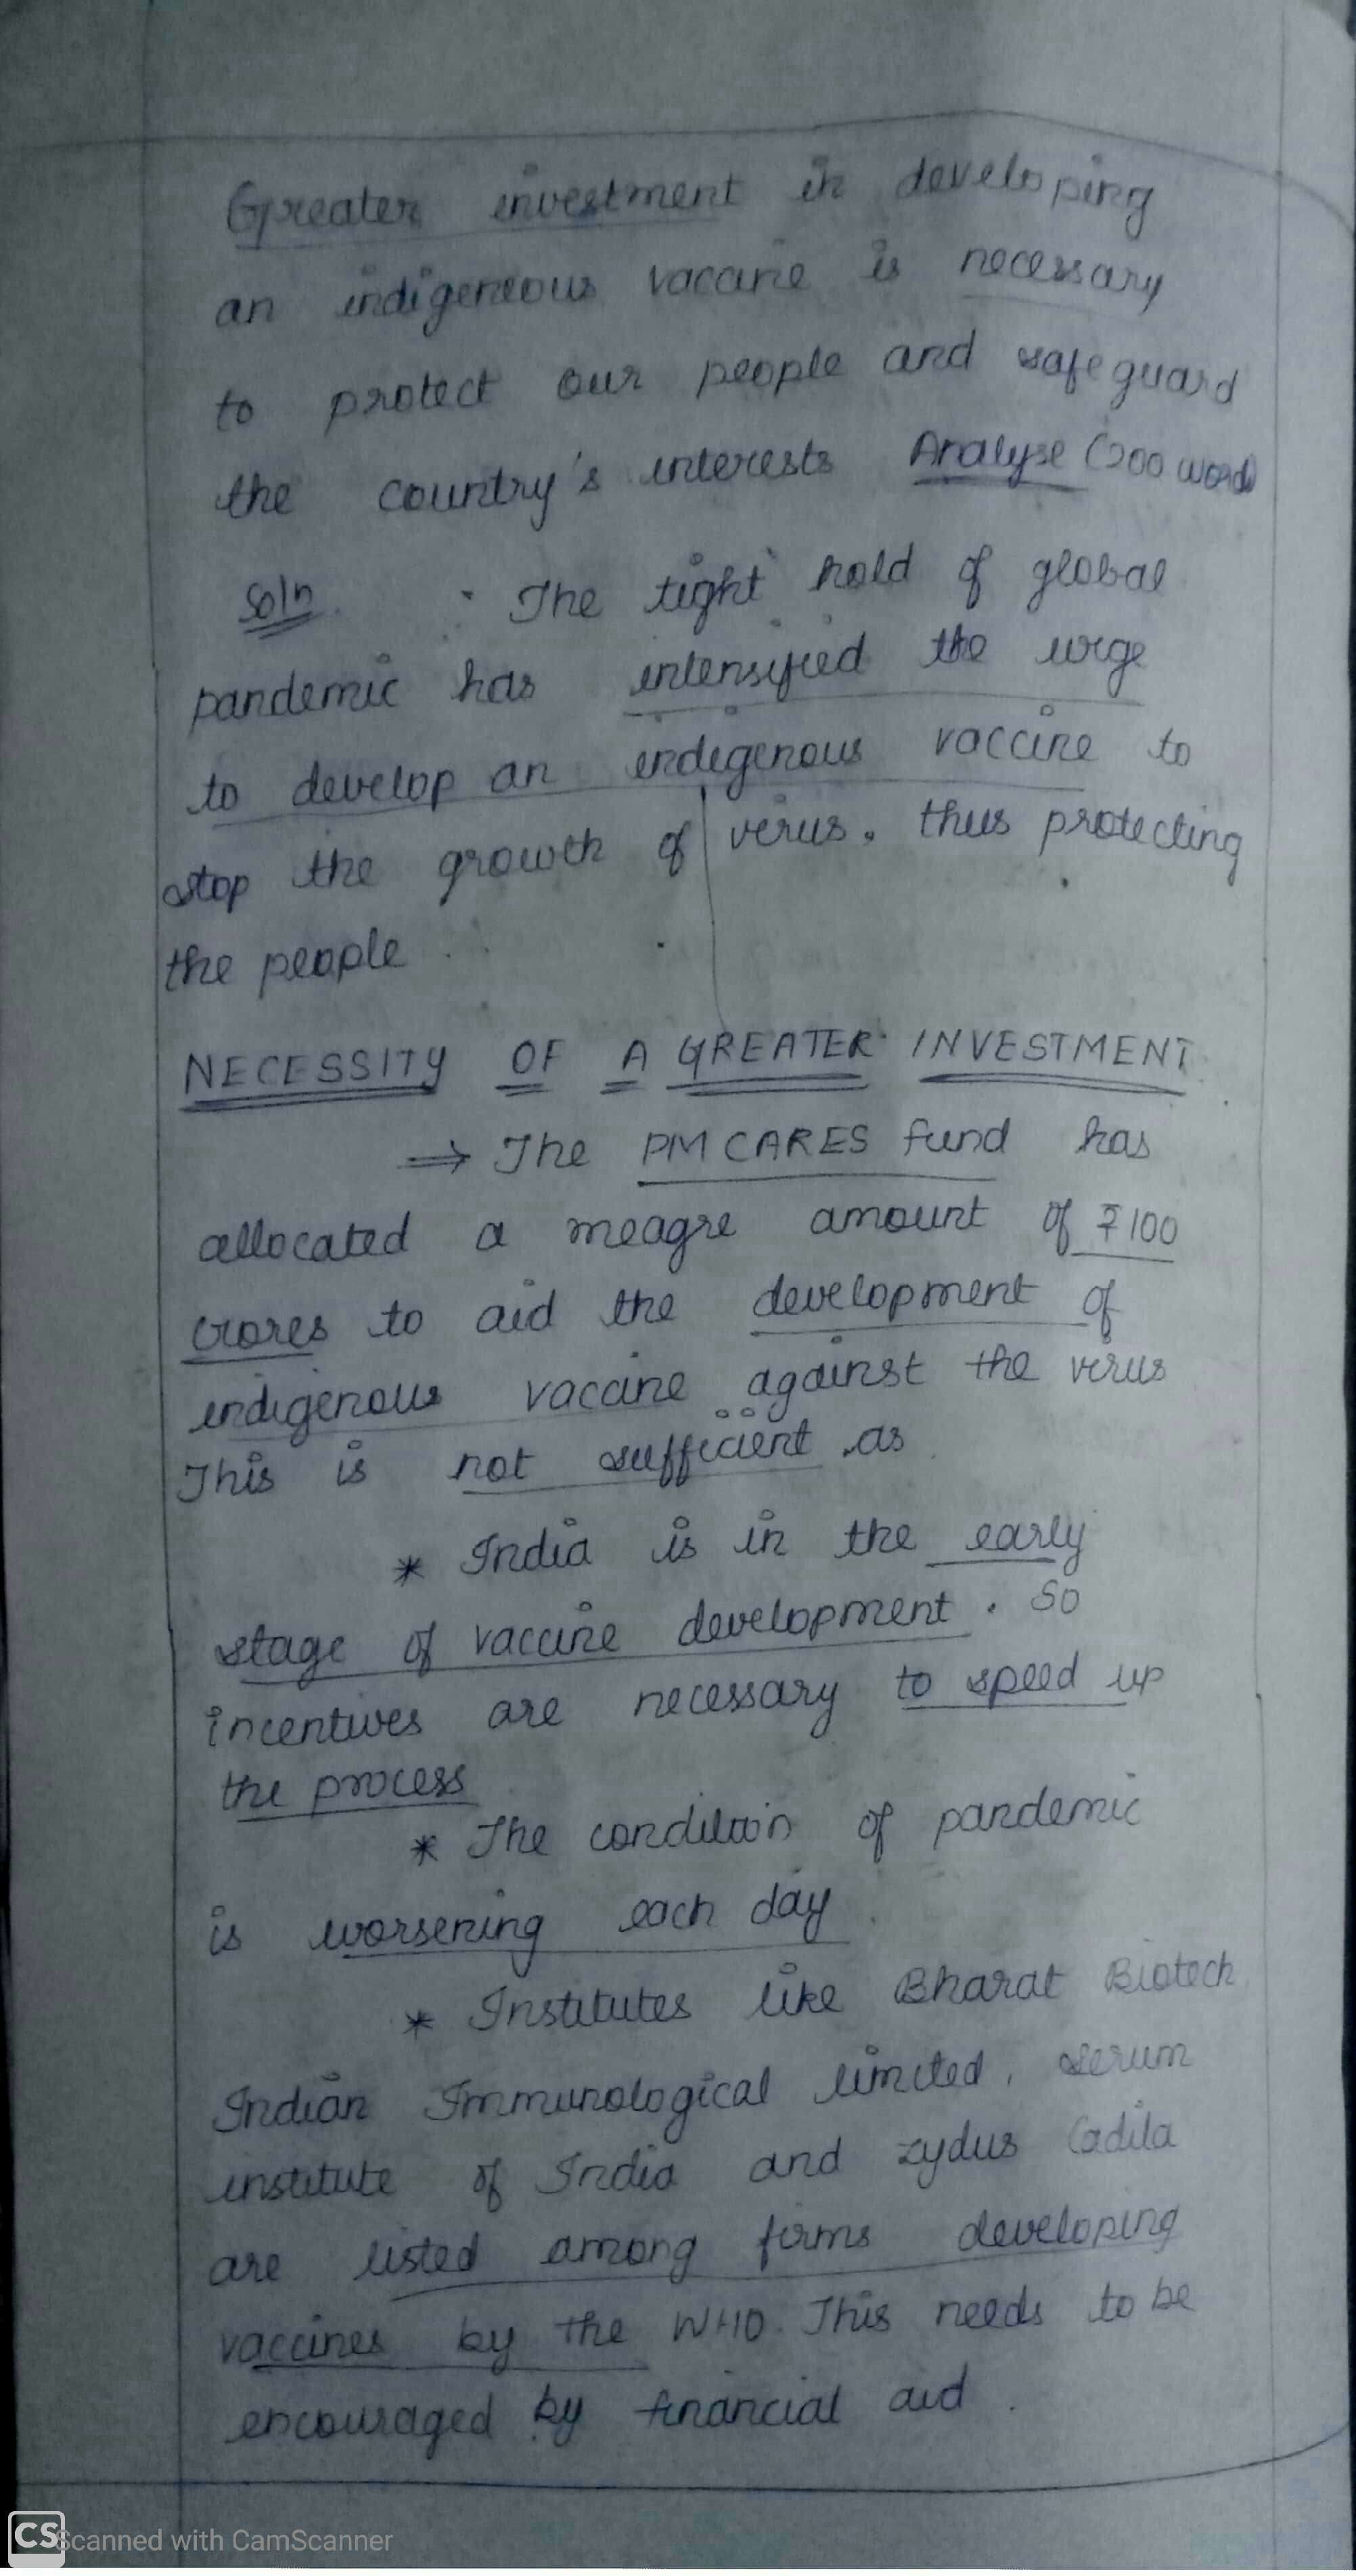 Greater investment in developing
an indigeneous vaccine is necessary
to protect our people and safeguard
the country's interests Analyse (200 words)
Soln. The tight hold of global
pandemic has intensified the urge
to develop an indigenous vaccine to
stop the growth of virus. thus protecting
the people
NECESSITY OF A GREATER INVESTMENT
⇒ The PM CARES fund has
allocated a meagre amount of ₹100
crores to aid the development of
indigenous vaccine against the virus
This is not sufficient as
* India is in the early
stage of vaccine development. So
incentives are necessary to speed up
the process
* The condition of pandemic
is worsening each day.
* Institutes like Bharat Biotech
Indian Immunological limited, serum
institute of India and zydus Cadila
are listed among firms developing
vaccines by the WHO. This needs to be
encouraged by financial aid.
CS Scanned with CamScanner